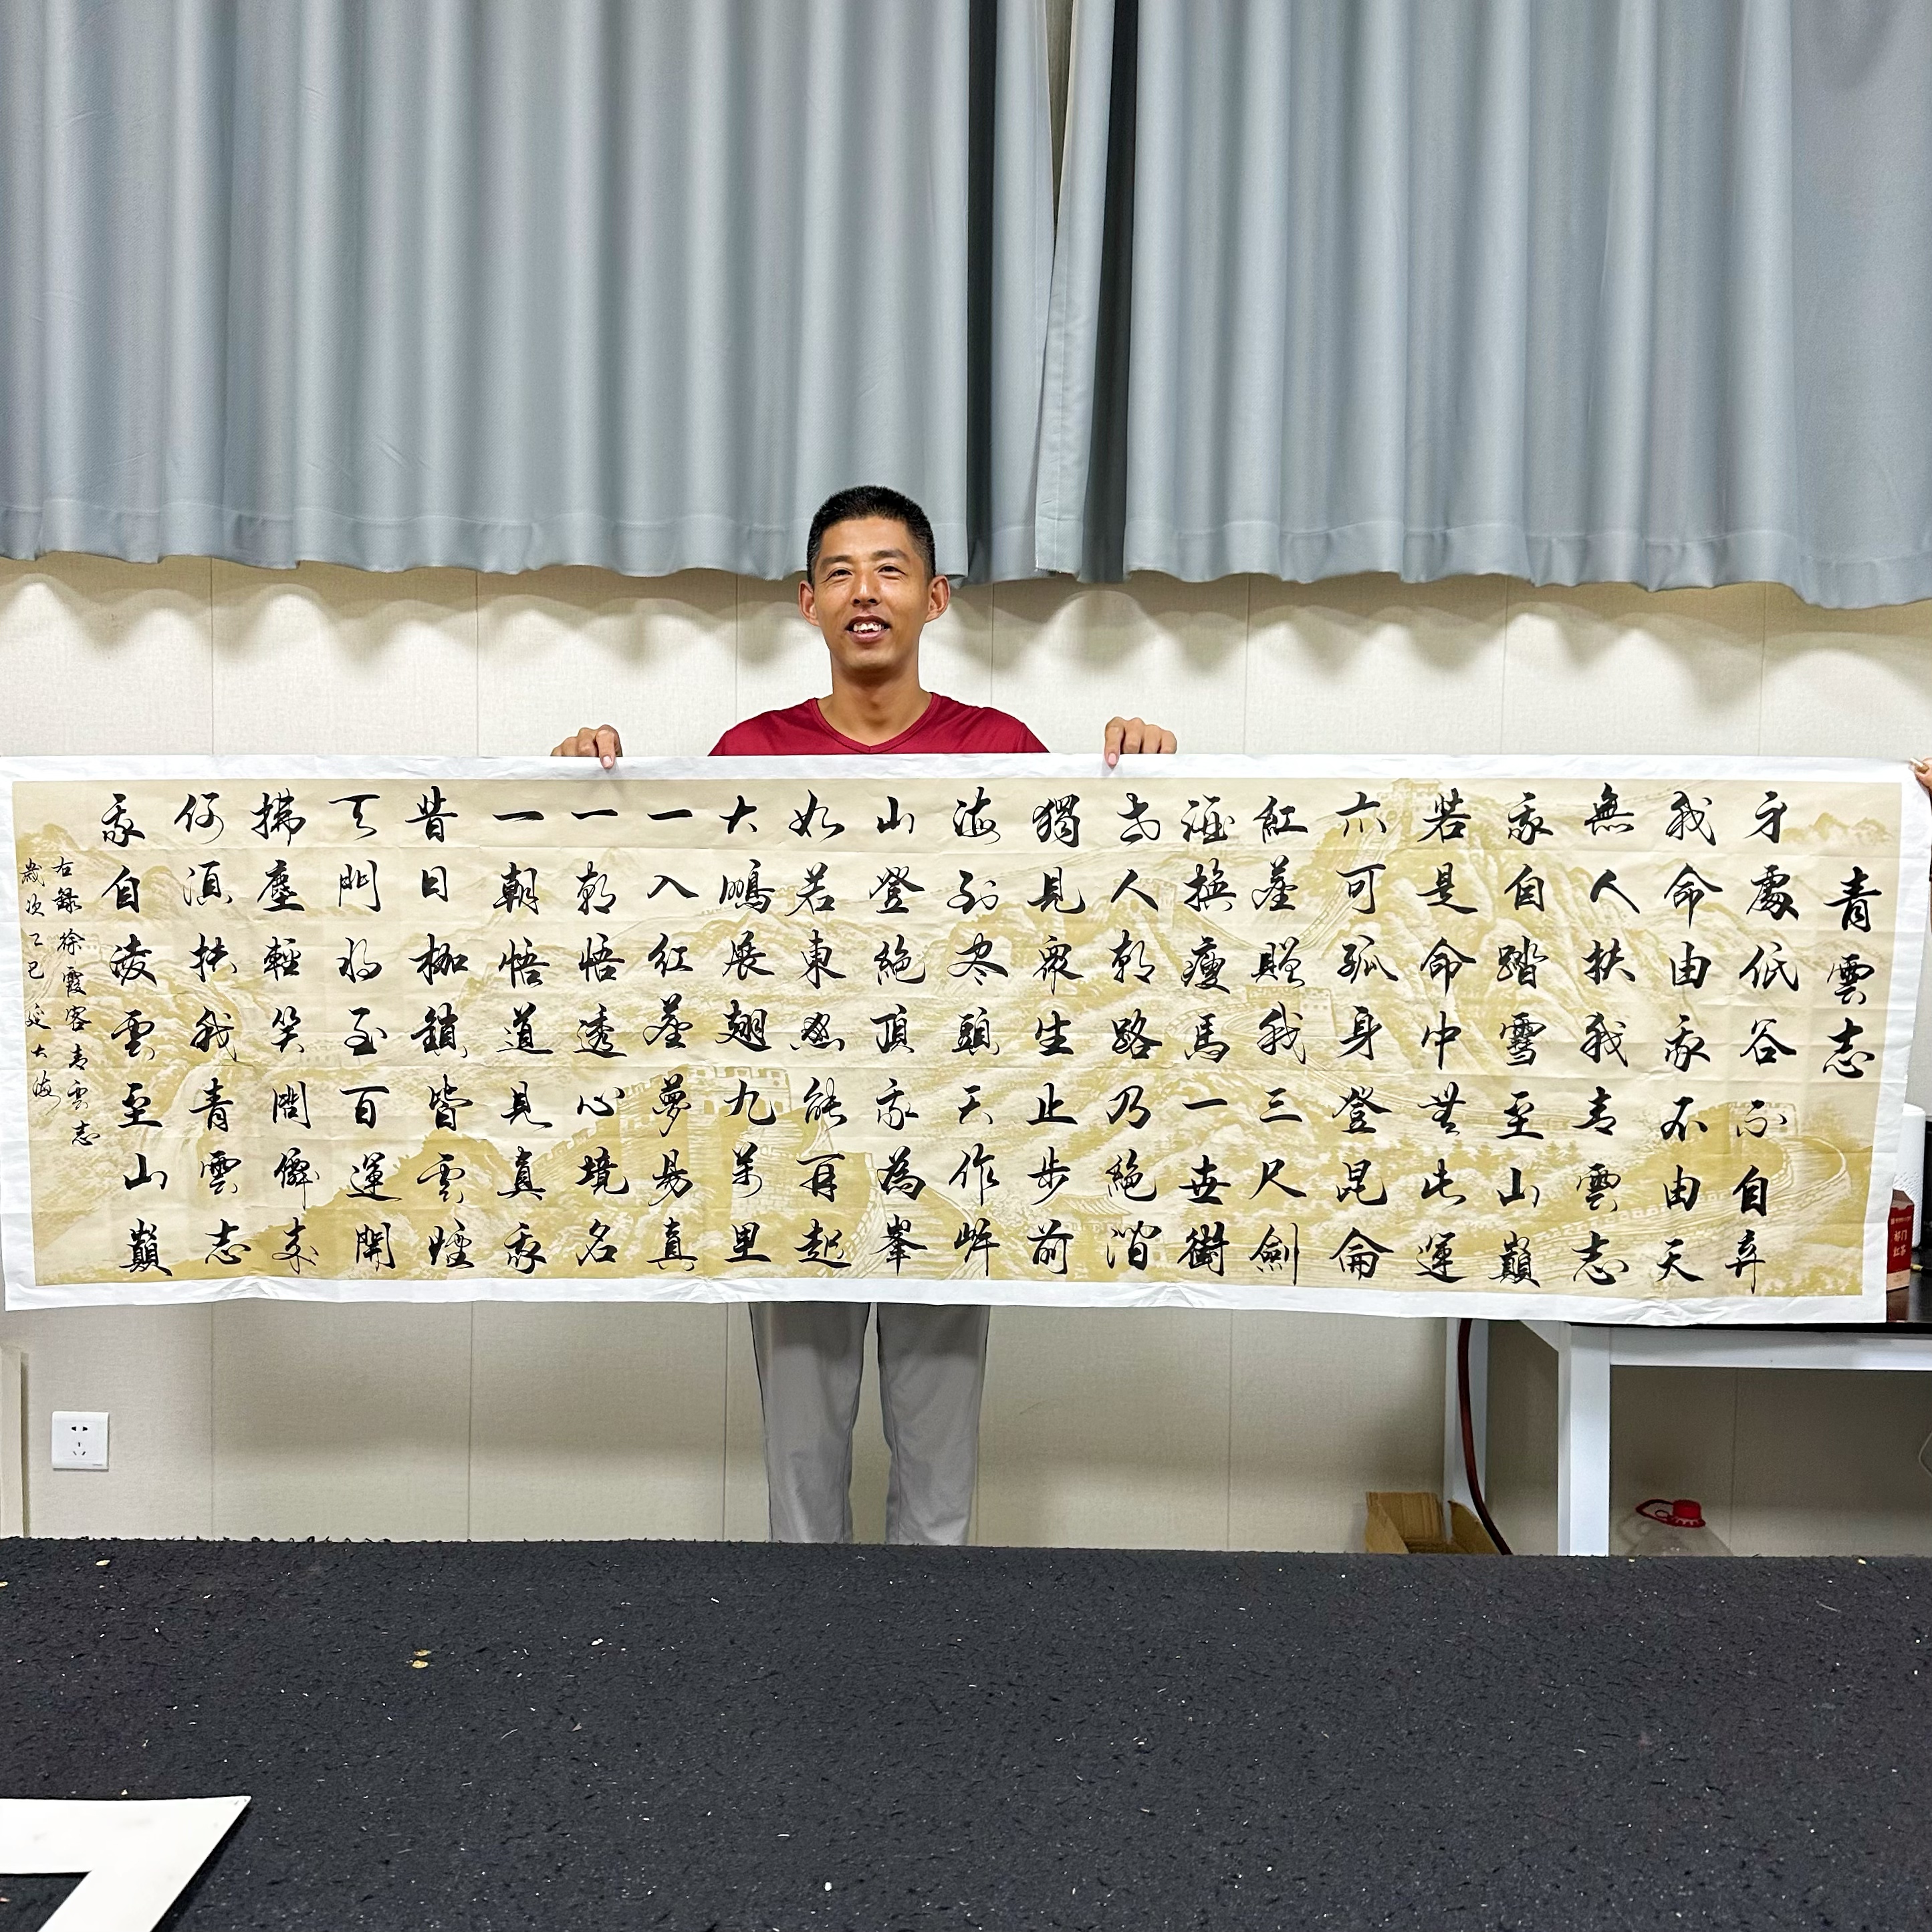 青雲志
身處低谷不自弃
我命由我不由天
無人扶我青雲志
我自踏雪至山巔
若是命中無此運
亦可孤身登昆侖
紅塵贈我三尺劍
酒換瘦馬一世銜
世人朝路乃絕涓
獨見衆生止步前
海到尽頭天作岸
山登絕頂我為峯
如若東風能再起
大鵬展翅九萬里
一入紅塵夢易真
一朝悟透心境名
一朝悟道見真我
昔日枷鎖皆雲煙
天門將至百運開
拂塵輕笑問僊來
何須扶我青雲志
我自凌雲至山巔
右錄徐霞客青雲志
歲次乙巳延大海
祁门
红茶